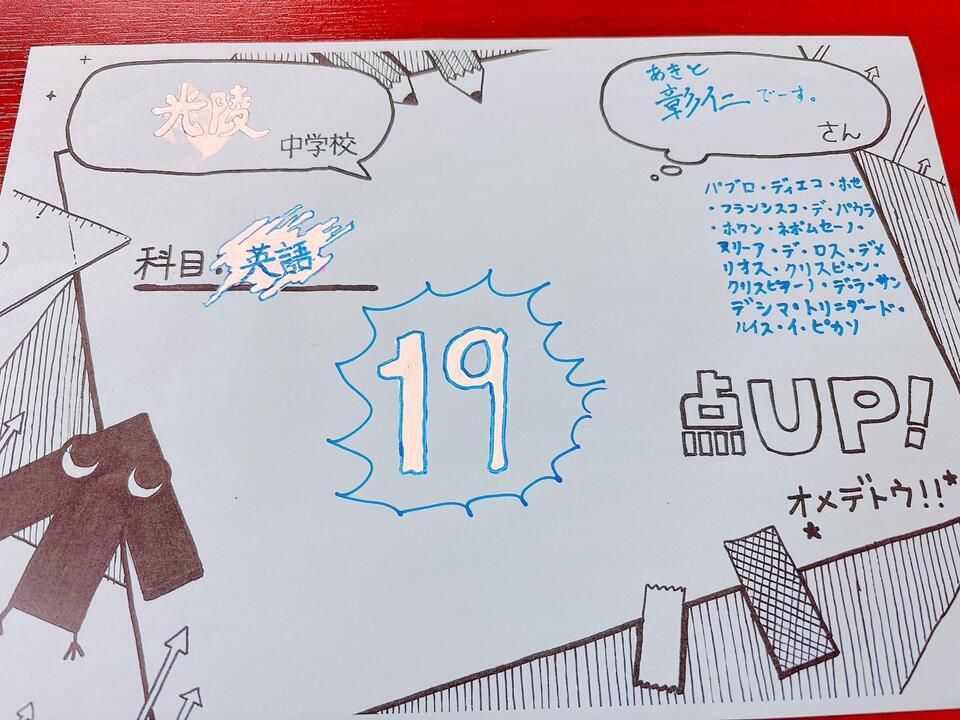 光陵
中学校
あきと
彰仁でーす。
さん
科目・英語
パブロ・ディエゴ・ホセ
・フランシスコ・デ・パウラ
・ホワン・ネポムセーノ・
ヌリーア・デ・ロス・デメ
リオス・クリスピャン・
クリスピヤーノ・デ・ラ・サン
デシマ・トリニダード・
ルイス・イ・ピカソ
19
点UP!
オメデトウ!!